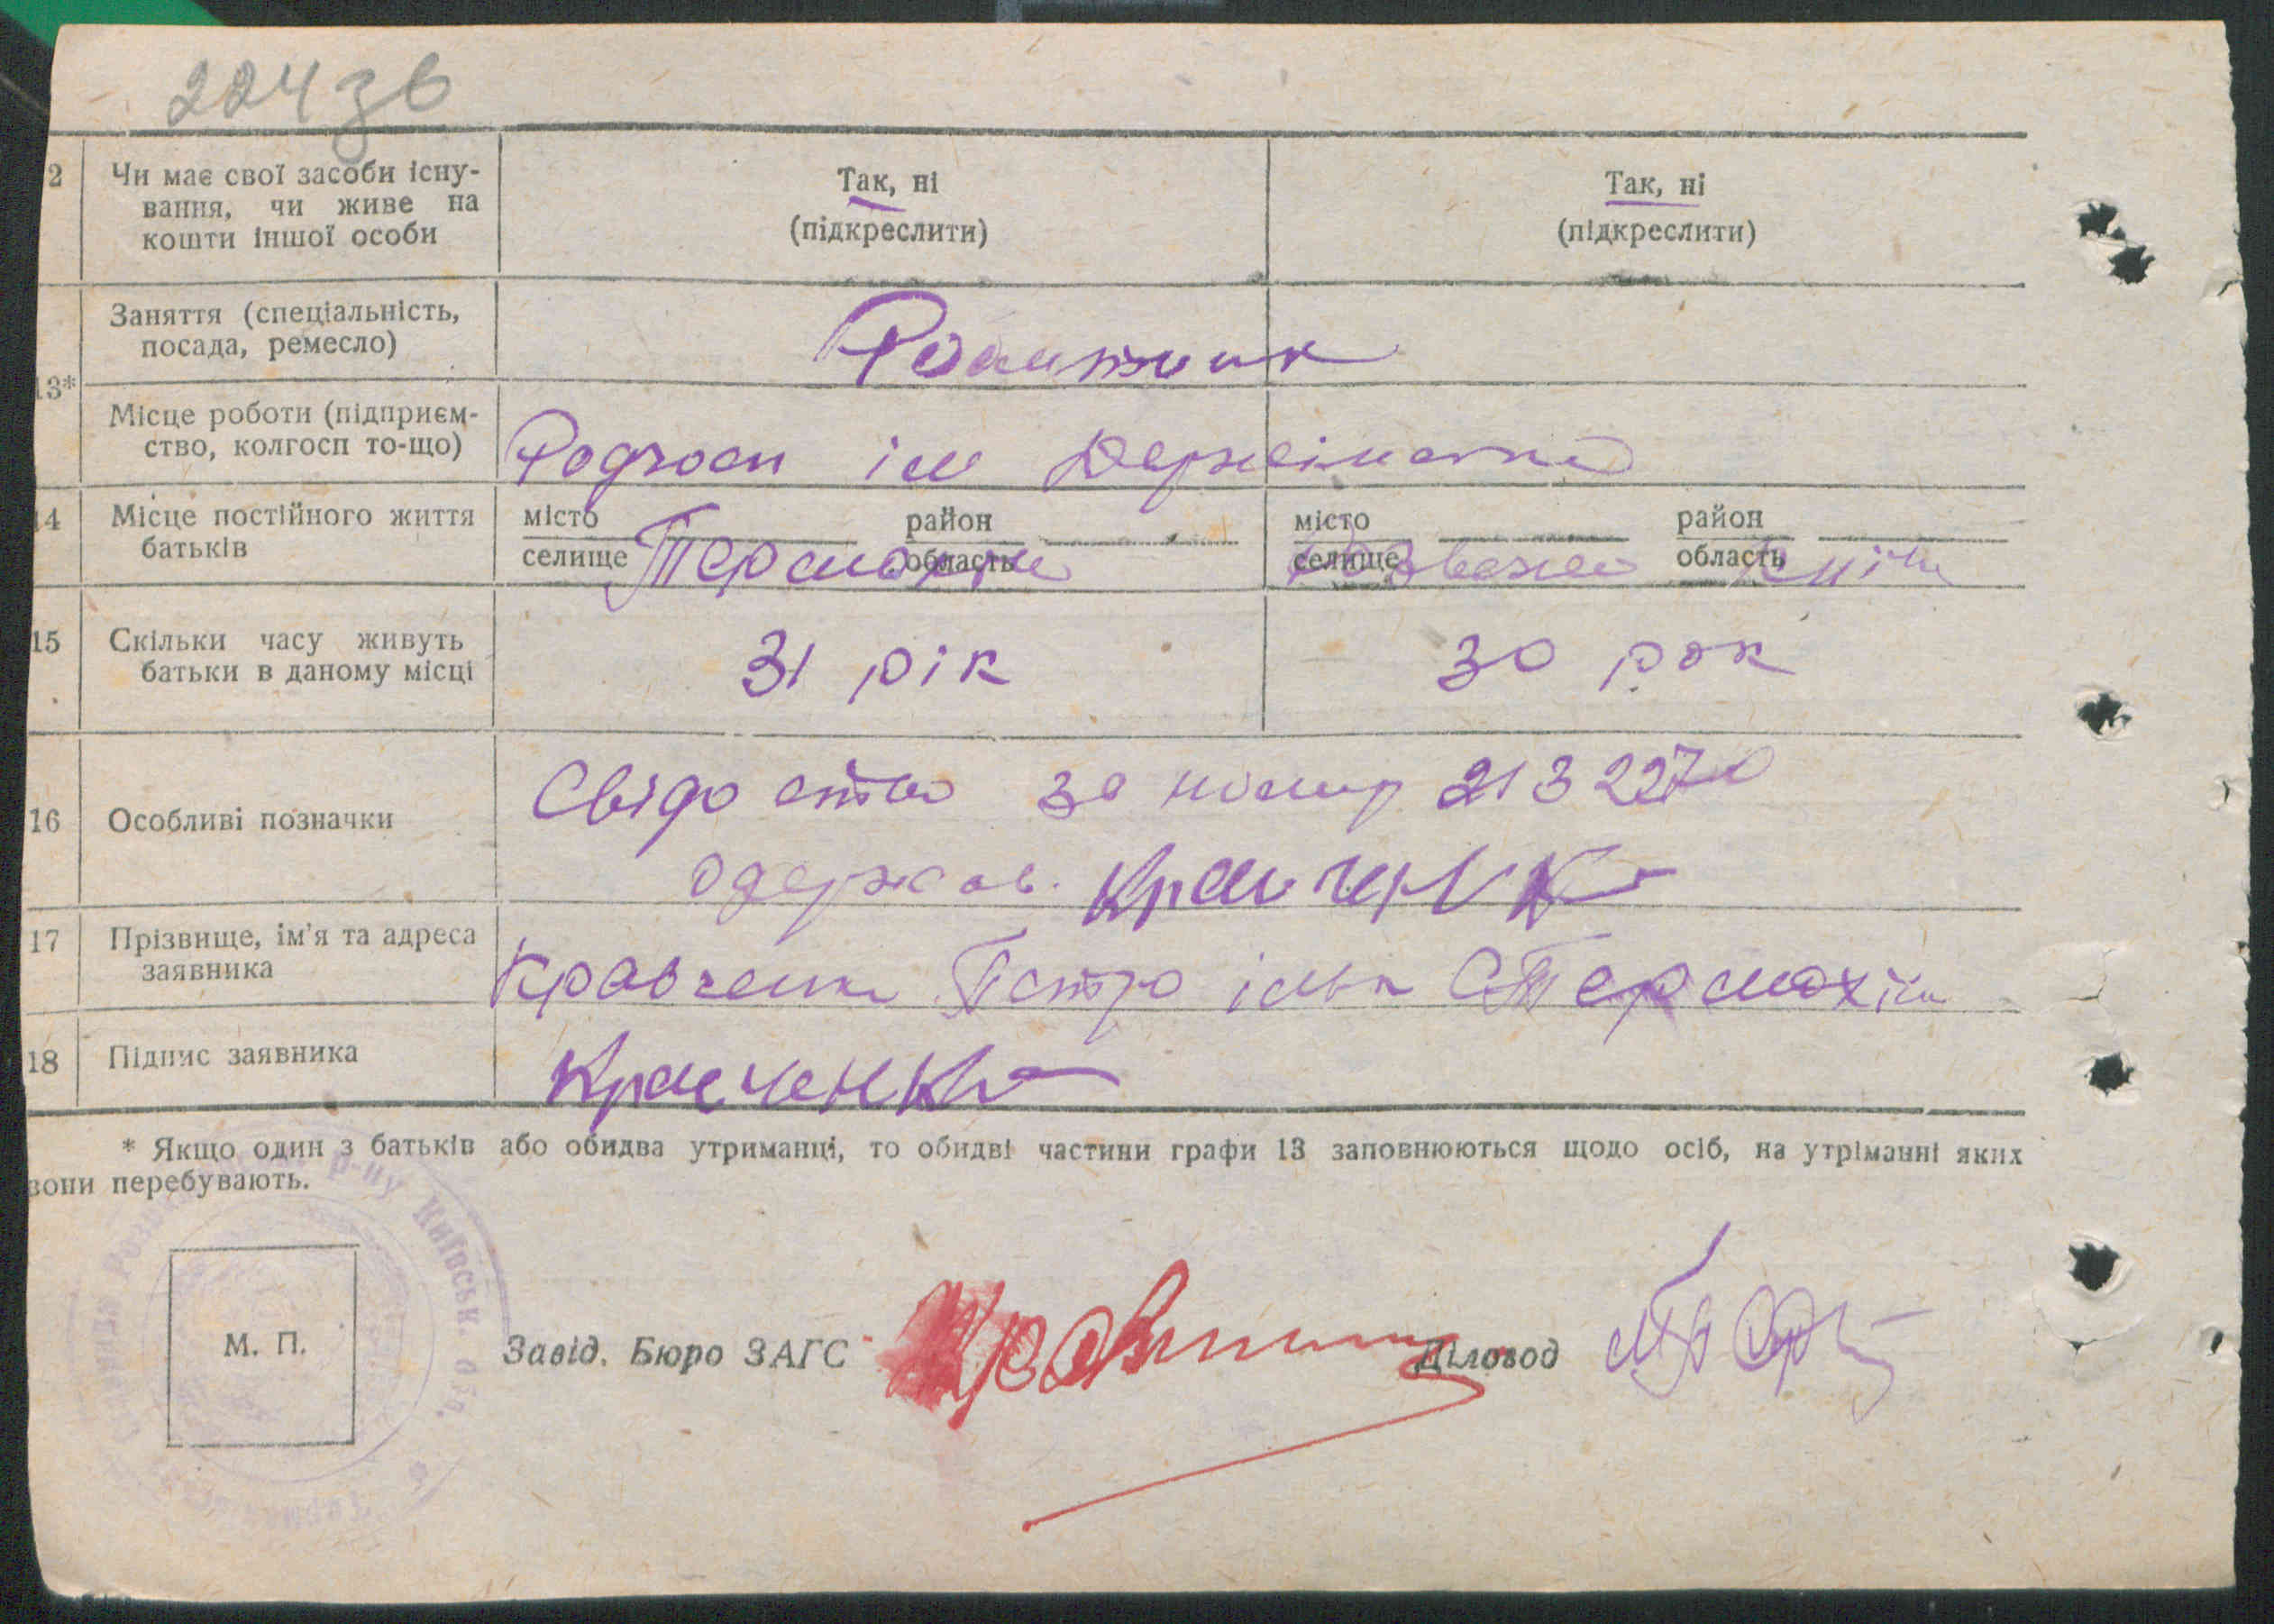 224 зв
2 Чи має свої засоби існу- Так, ні Так, ні
вання, чи живе на
кошти іншої особи (підкреслити) (підкреслити)
Заняття (спеціальність,
посада, ремесло) Робітник
13*
Місце роботи (підприєм-
ство, колгосп то-що) Радгосп ім
14 Місце постійного життя місто район місто район
батьків селище область селище область
15 Скільки часу живуть 31 рік 30 рок
батьки в даному місці
Свідоство за номир 2132270
16 Особливі позначки
одержав. Кравченк
17 Прізвище, ім'я та адреса
заявника Кравченк Петро
18 Підпис заявника Кравченко
* Якщо один з батьків або обидва утриманці, то обидві частини графи 13 заповнюються щодо осіб, на утріманні яких
вони перебувають.
р-ну Київськ. обл.
М. П. Завід. Бюро ЗАГС Діловод